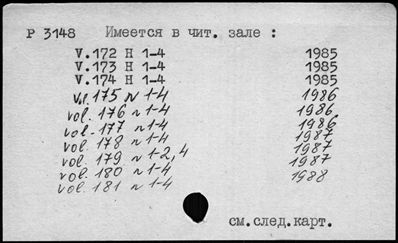 Р 3148 Имеется в чит. зале :
V.172 N 1-4 1985
V.173 N 1-4 1985
V.174 N 1-4 1985
vol. 175 N 1-4 1986
vol. 176 N 1-4 1986
vol. 177 N 1-4 1986
vol. 178 N 1-4 1987
vol. 179 N 1-2,4 1987
vol. 180 N 1-4 1987
vol. 181 N 1-4 1988
см.след.карт.